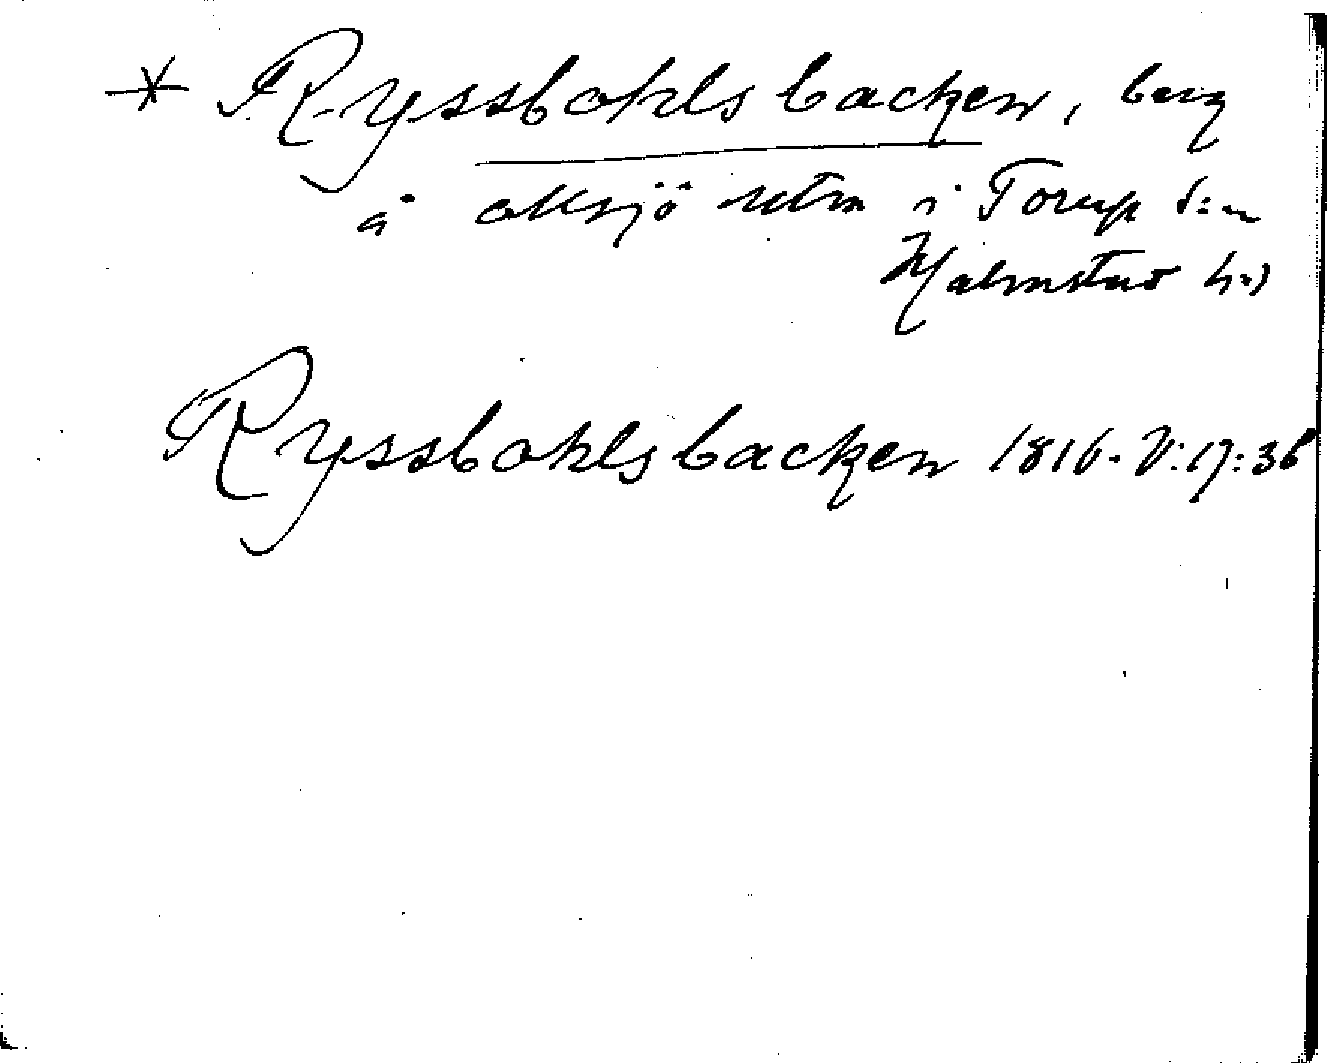 * Ryssbohlsbacken, berg
å Oxsjö utm i Torup s:n
Halmstad hd
Ryssbohlsbacken 1816. V:17:36